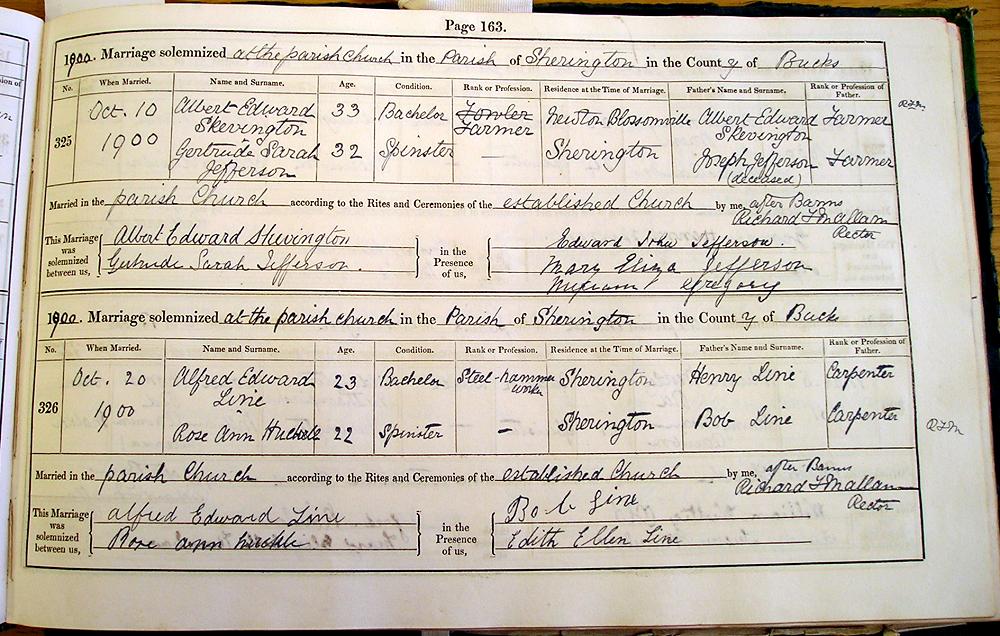 Page 163.
1900. Marriage solemnized at the parish church in the Parish of Sherington in the County of Bucks
No. When Married. Name and Surname. Age. Condition. Rank or Profession. Residence at the Time of Marriage. Father's Name and Surname. Rank or Profession of Father.
325 Oct. 10 1900 Albert Edward Skevington 33 Bachelor Fowler Farmer Newton Blossomville Albert Edward Skevington Farmer
Gertrude Sarah Jefferson 32 Spinster – Sherington Joseph Jefferson (deceased) Farmer
Married in the parish Church according to the Rites and Ceremonies of the established Church by me, after Banns
Richard F Mallam
Rector
This Marriage was solemnized between us, Albert Edward Skevington
Gertrude Sarah Jefferson.
in the Presence of us, Edward John Jefferson.
Mary Eliza Jefferson
Gregory
1900. Marriage solemnized at the parish church in the Parish of Sherington in the County of Bucks
No. When Married. Name and Surname. Age. Condition. Rank or Profession. Residence at the Time of Marriage. Father's Name and Surname. Rank or Profession of Father.
326 Oct. 20 1900 Alfred Edward Line 23 Bachelor Steel-hammer worker Sherington Henry Line Carpenter
Rose Ann Huckle 22 Spinster – Sherington Bob Line Carpenter
Married in the parish Church according to the Rites and Ceremonies of the established Church by me, after Banns
Richard F Mallam
Rector
This Marriage was solemnized between us, Alfred Edward Line
Rose ann huckle
in the Presence of us, Bob Line
Edith Ellen Line